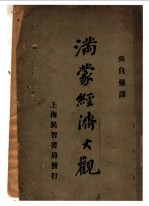 吳自強譯
滿蒙經濟大觀
上海民智書局發行